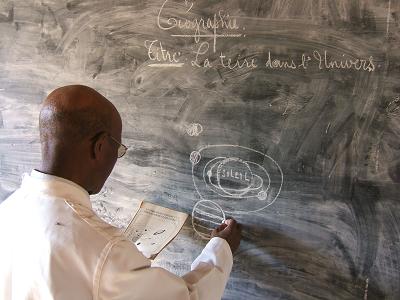 Géographie.
Titre: La terre dans l'Univers.
SOLEIL